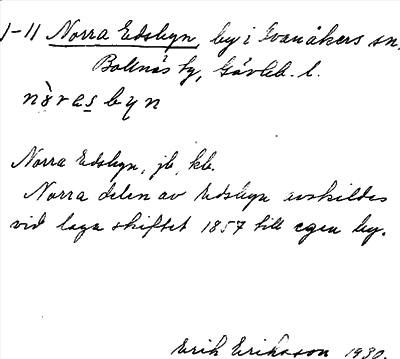 1-11 Norra Edsbyn, by i Ovanåkers sn,
Bollnäs tg, Gävleb. l.
nòrɐesbyn
Norra Edsbyn, jb, kb.
Norra delen av Edsbyn avskildes
vid laga skiftet 1857 till egen by.
Erik Eriksson 1930.